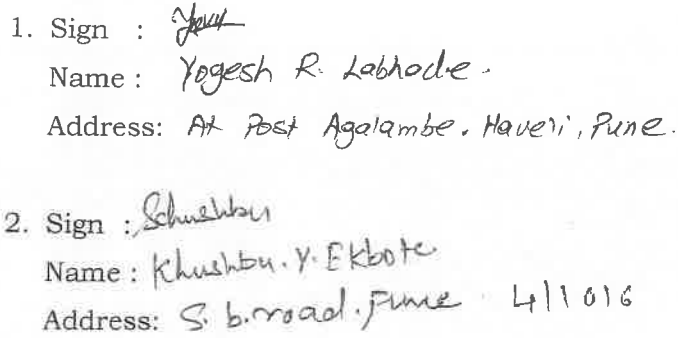 1. Sign :
Name : Yogesh R. Labhade.
Address: At Post Agalambe. Haveri, Pune.
2. Sign :
Name : Khushbu. Y. Ekbote
Address: S. b. road. Pune 411016